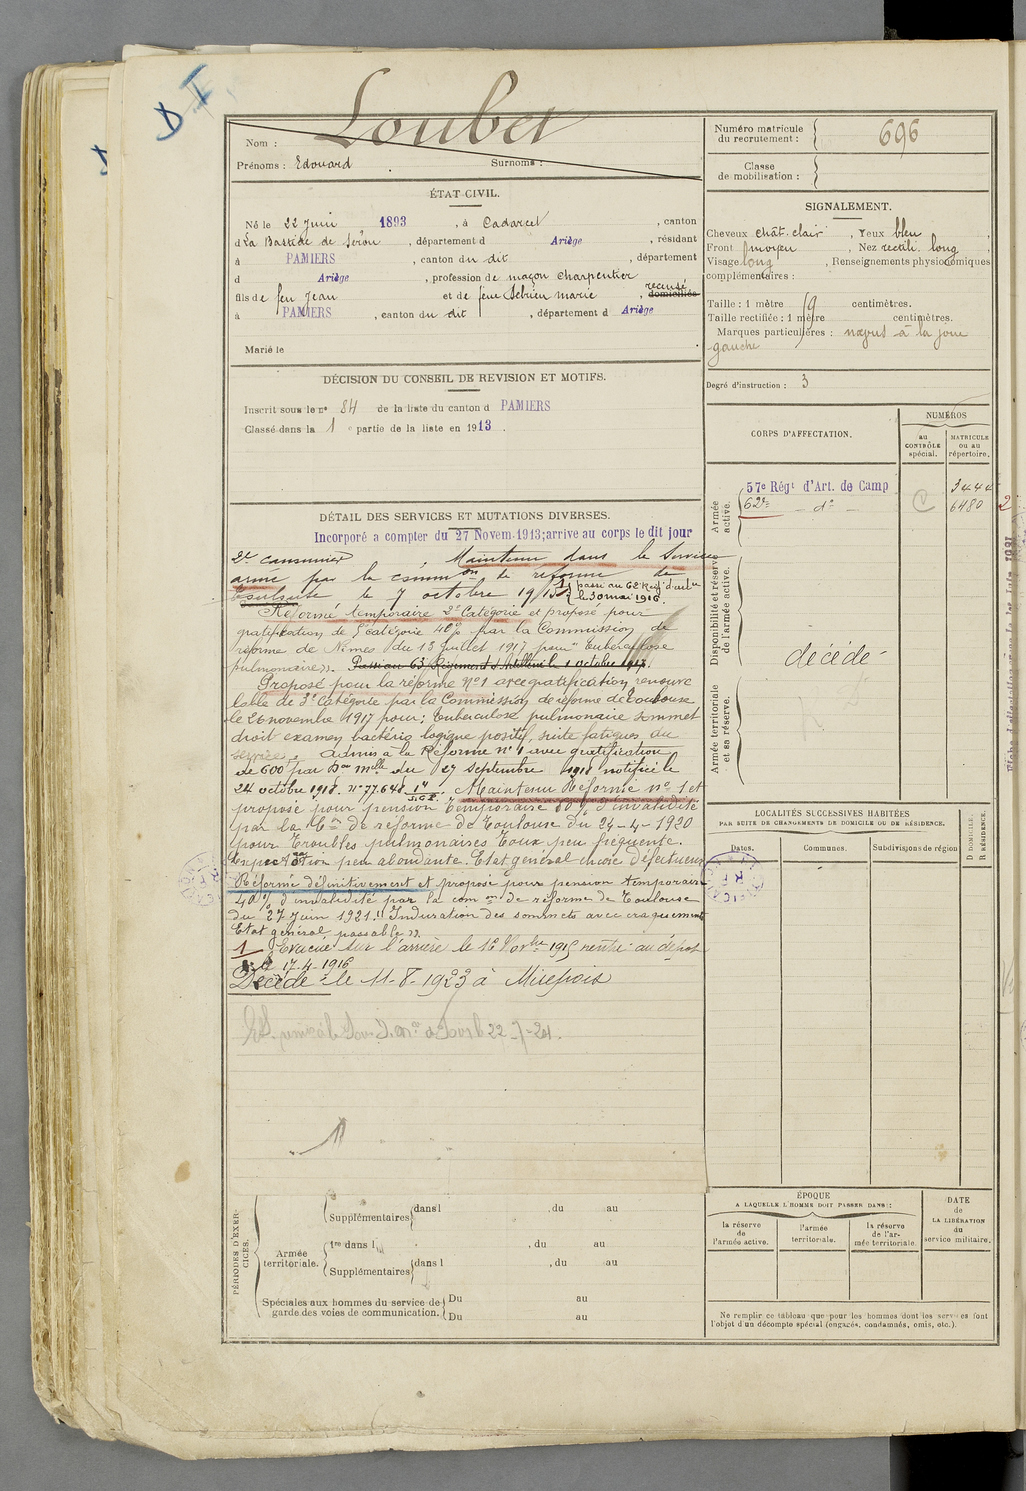 Loubet
Nom :
Prénoms : Edouard Surnoms :
ÉTAT CIVIL.
Né le 22 Juin 1893, à Cadarcet, canton
d La Bastide de Sérou, département d Ariège, résidant
à PAMIERS, canton du dit, département
d Ariège, profession de maçon charpentier
fils de feu Jean et de feue Sebrieu marie, recensé domicilié
à PAMIERS, canton du dit, département d Ariège
Marié le
DÉCISION DU CONSEIL DE REVISION ET MOTIFS.
Inscrit sous le no 84 de la liste du canton d PAMIERS
Classé dans la 1e partie de la liste en 1913.
DÉTAIL DES SERVICES ET MUTATIONS DIVERSES.
Incorporé a compter du 27 Novem. 1913; arrive au corps le dit jour
2e canonnier, Maintenu dans le Service
armé par la common de réforme de
Toulouse le 7 octobre 1915 1) passé au 62 Régt d'art
le 30 mai 1916.
Réformé temporaire 2e Catégorie et proposé pour
gratification de 5e catégorie 40% par la Commission de
réforme de Nimes du 13 juillet 1917 pour "Tuberculose
pulmonaire". Passé au 63 Régiment d'Artillerie le 1 octobre 1917.
Proposé pour la réforme No 1 avec gratification renouve
lable de 3e Catégorie par la Commission de réforme de Toulouse
le 26 novembre 1917 pour: Tuberculose pulmonaire sommet
droit examen bactério logique positif, suite fatigues du
service. Admis à la Réforme no 1 avec gratification
de 600f par Don mlle du 27 septembre 1918 notifié le
24 octobre 1918. No 77.648 Maintenu Réformé no 1 et
proposé pour pension temporaire 60% d'invalidité
par la Con de réforme de Toulouse du 24-4-1920
pour Troubles pulmonaires Toux peu fréquente.
Expectoration peu abondante. Etat général encore défectueux
Réformé définitivement et proposé pour pension temporaire
40% d'invalidité par la com on de réforme de Toulouse
du 27 Juin 1921 "Induration des sommets avec craquements
Etat général passable".
1 Evacué sur l'arrière le 16 Novbre 1915 rentré au dépôt
le 17-4-1916
Décédé le 11-8-1923 à Mirepoix
22-7-24.
PÉRIODES D'EXERCICES.
Supplémentaires dans l , du au
Armée territoriale. 1re dans l , du au
Supplémentaires dans l , du au
Spéciales aux hommes du service de garde des voies de communication. Du au
Du au
Numéro matricule
du recrutement : 696
Classe
de mobilisation :
SIGNALEMENT.
Cheveux chât. clair, Yeux bleu,
Front moyen, Nez rectili. long,
Visage long, Renseignements physionomiques
complémentaires :
Taille : 1 mètre 69 centimètres.
Taille rectifiée : 1 mètre centimètres.
Marques particulières : à la joue
gauche
Degré d'instruction : 3
CORPS D'AFFECTATION.
NUMÉROS
au CONTRÔLE spécial.
MATRICULE ou au répertoire.
Armée active.
57e Régt d'Art. de Camp 3444
62e - do - 6480
Disponibilité et réserve de l'armée active.
décédé
Armée territoriale et sa réserve.
LOCALITÉS SUCCESSIVES HABITÉES
PAR SUITE DE CHANGEMENTS DE DOMICILE OU DE RÉSIDENCE.
Dates. Communes. Subdivisions de région
D DOMICILE.
R RÉSIDENCE.
ÉPOQUE
A LAQUELLE L'HOMME DOIT PASSER DANS :
la réserve de l'armée active.
l'armée territoriale.
la réserve de l'armée territoriale.
DATE
de
LA LIBÉRATION
du
service militaire.
Ne remplir ce tableau que pour les hommes dont les services font
l'objet d'un décompte spécial (engagés, condamnés, omis, etc.).